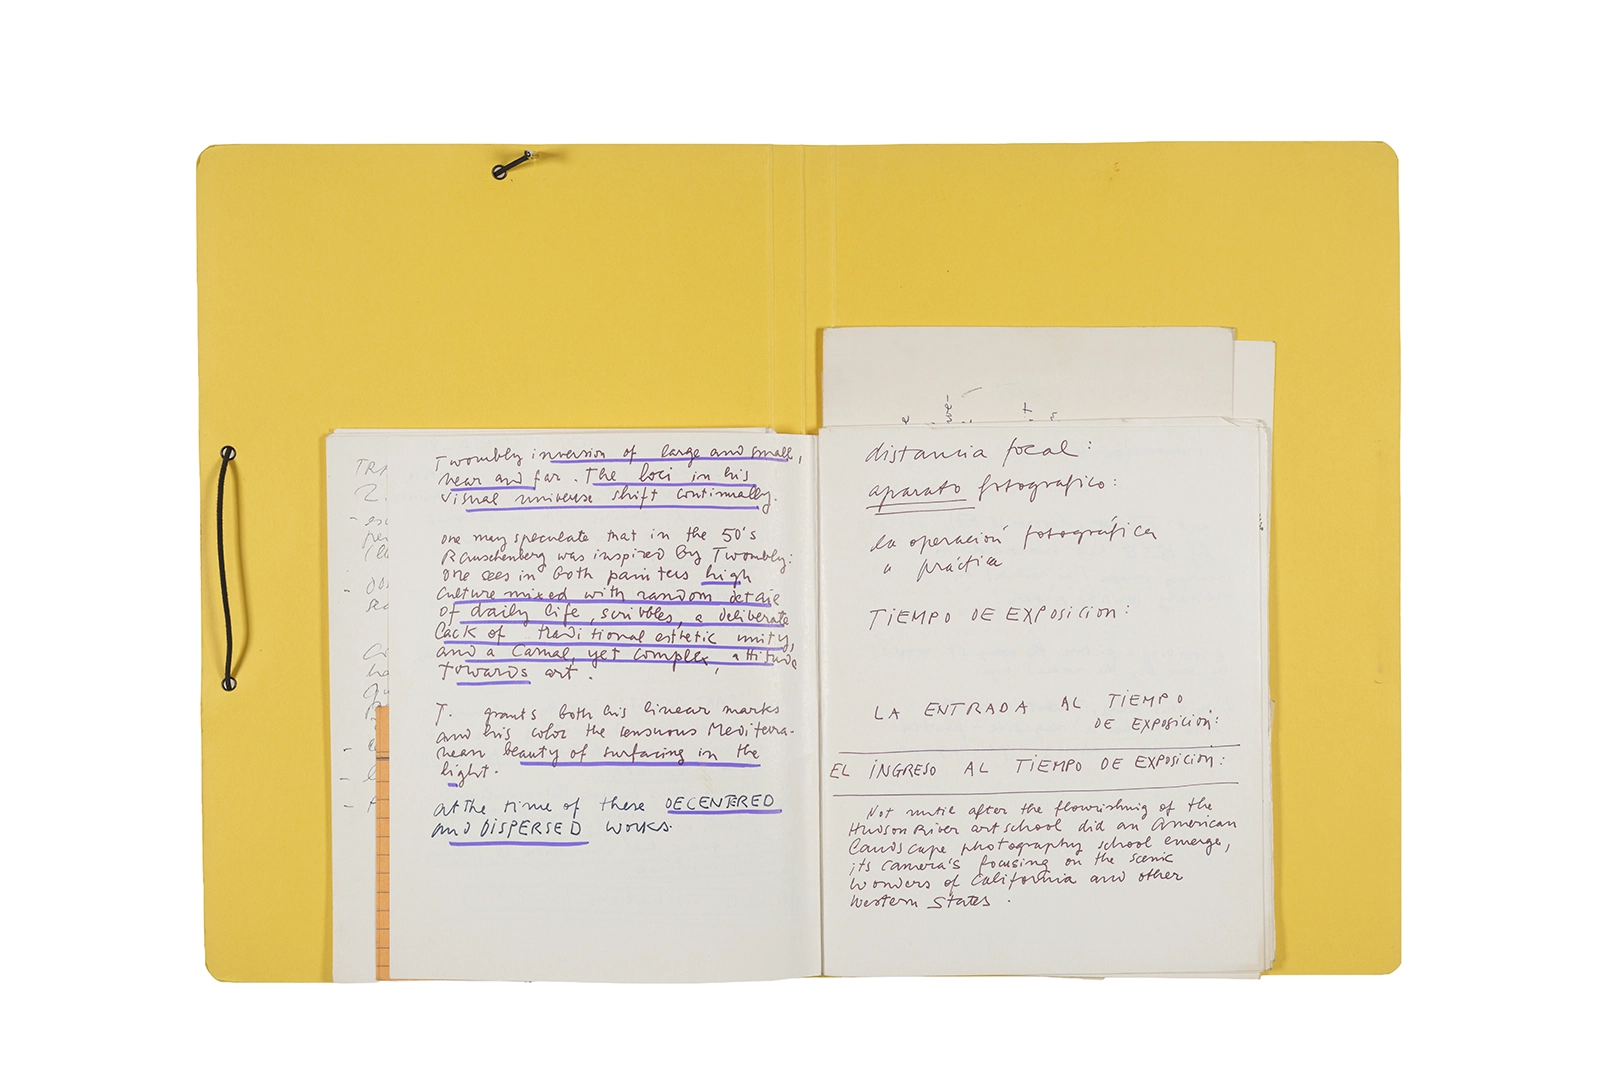 TRA
2.
Twombly inversion of large and small,
near and far. The loci in his
visual universe shift continually.
one may speculate that in the 50's
Rauschenberg was inspired by Twombly:
one sees in both painters high
culture mixed with random detail
of daily life, scribbles, a deliberate
lack of traditional esthetic unity,
and a camal, yet complex, attitude
towards art.
T. grants both his linear marks
and his color the sensuous Mediterra-
nean beauty of surfacing in the
light.
at the time of these DECENTERED
and DISPERSED works.
distancia focal:
aparato fotografico:
la operación fotográfica
o práctica
TIEMPO DE EXPOSICION:
LA ENTRADA AL TIEMPO
DE EXPOSICIÓN:
EL INGRESO AL TIEMPO DE EXPOSICIÓN:
Not until after the flourishing of the
Hudson River art school did an American
Landscape photography school emerge,
its camera's focusing on the scenic
wonders of California and other
western States.